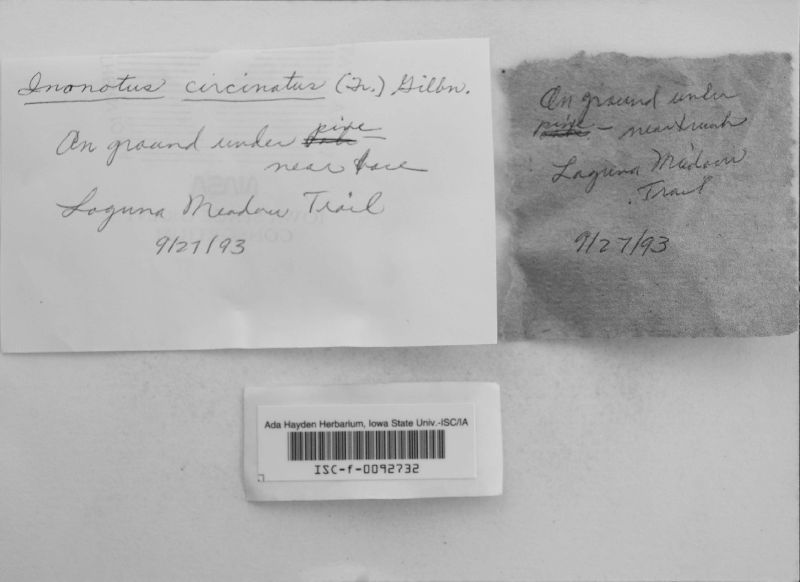 Inonotus circinatus (Fr.) Gilbn.
On ground under pine
near base
Laguna Meadow Trail
9/27/93
On ground under
pine - near trunk
Laguna Meadow
Trail
9/27/93
Ada Hayden Herbarium, Iowa State Univ.-ISC/IA
ISC-f-0092732